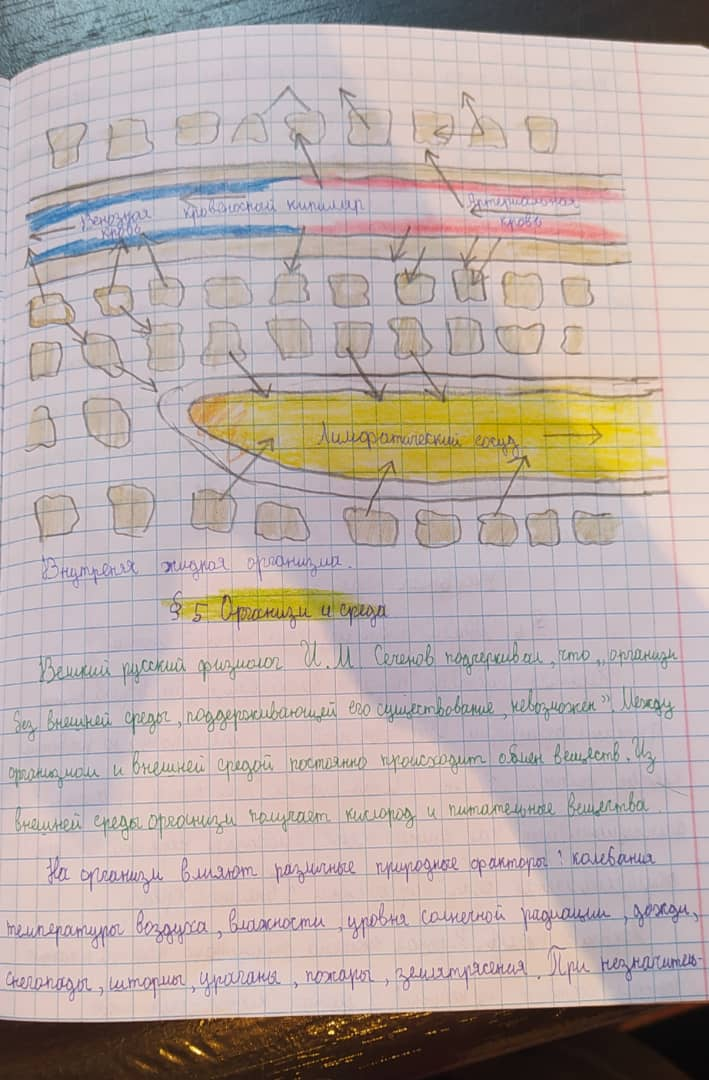 Венозная кровь
кровеносный капиляр
Артериальная кровь
Лимфатический сосуд
Внутреняя жидкая организма.
§ 5 Организм и среда
Великий русский физиолог И. М Сеченов подчеркивал, что „организм
без внешней среды, поддерживающей его существование, невозможен”. Между
организмом и внешней средой постоянно происходит обмен веществ. Из
внешней среды организм получает кислород и питательные вещества.
На организм влияют различные природные факторы: колебания
температуры воздуха, влажности, уровня солнечной радиации, дожди,
снегопады, штормы, ураганы, пожары, землятрясения. При незначитель-